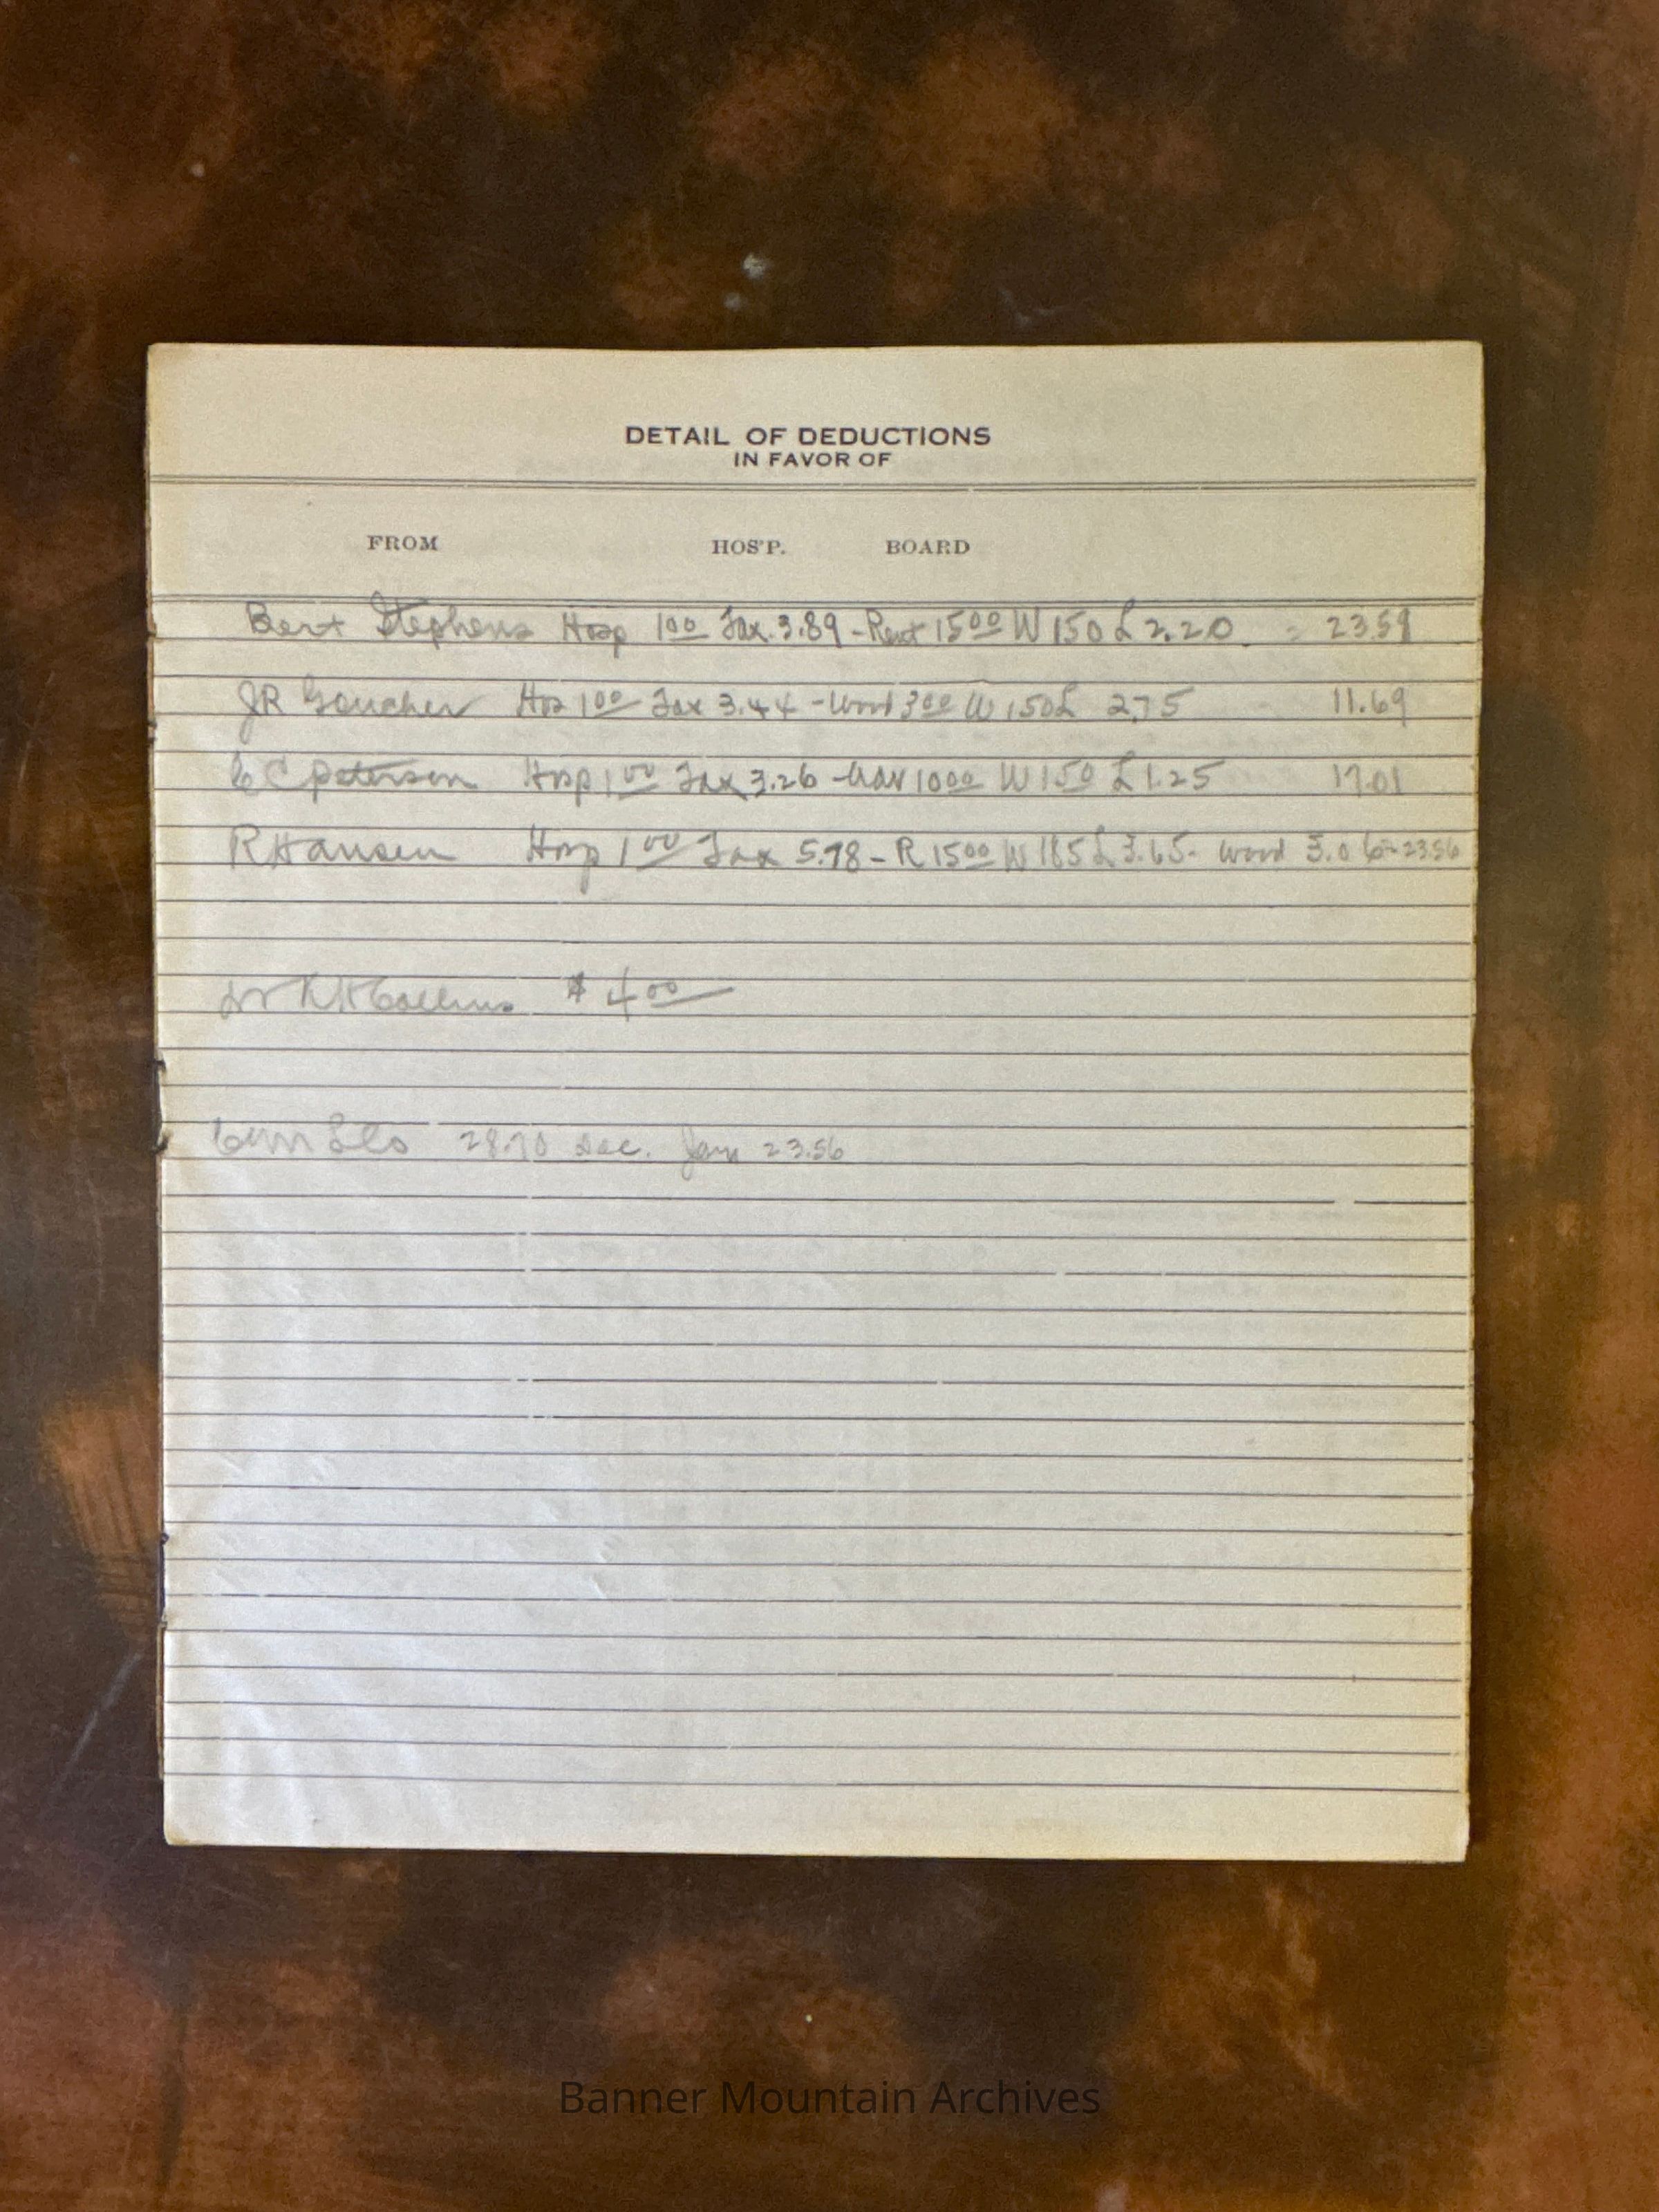 DETAIL OF DEDUCTIONS
IN FAVOR OF
FROM HOS'P. BOARD
Bert Stephens Hosp 1 00 Tax 3.89 - Rent 15 00 W 150 L 2.20 = 23.59
JR Goucher Hos 1 00 Tax 3.44 - Wood 3 00 W 150 L 2.75 11.69
C C Peterson Hosp 1 00 Tax 3.26 - 10 00 W 150 L 1.25 17.01
R Hansen Hosp 1 00 Tax 5.78 - R 15 00 W 185 L 3.65 - Wood 23.56
Dr Collins $ 4 00
28.70 Dec. Jan 23.56
Banner Mountain Archives